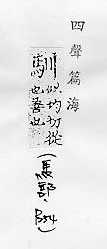 四聲篇海
馴似均切從
也善也
(馬部、B54)